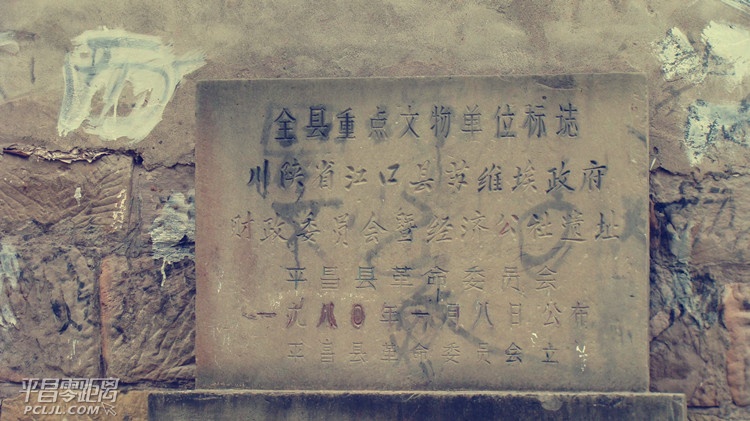 全县重点文物单位标志
川陕省江口县苏维埃政府
财政委员会暨经济公社遗址
平昌县革命委员会
一九八〇年一月八日公布
平昌县革命委员会立
平昌零距离
PCLJL.COM